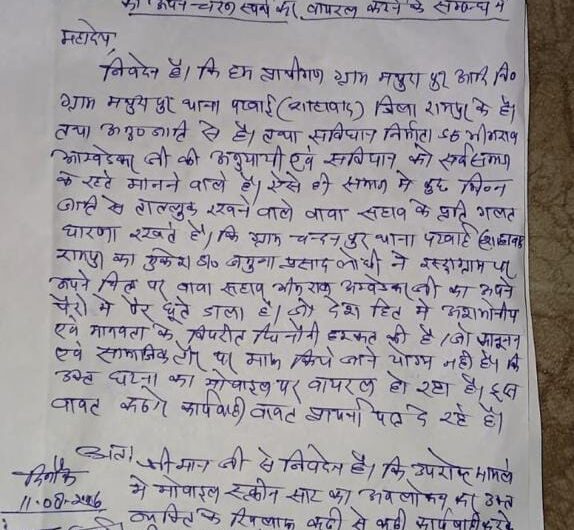 को अपने चरण स्पर्श का वायरल करने के सम्बन्ध में
महादेय,
निवेदन है। कि हम प्रार्थीगण ग्राम मथुरा पुर आदि नि०
ग्राम मथुरा पुर थाना पटवाई (शाहाबाद) जिला रामपुर के है।
तथा अ०जाति से है। तथा सविधान निर्माता डा० भीमराव
आम्बेडकर जी की अनुयायी एवं सविधान को सर्व सम्मत
के रहते मानने वाले है। ऐसे ही समाज मे कुछ भिन्न
जाति से ताल्लुक रखने वाले बाबा सहाव के प्रति गलत
धारणा रखते है, कि ग्राम चन्दन पुर थाना पटवाई (शाहाबाद
रामपुर का मुकेश S/o जमुना प्रसाद लोधी ने इंस्टाग्राम पर
अपने पर बाबा सहाव भीमराव अम्बेडकर जी का अपने
पैरो मे पैर छूते डाला है। जो देश हित मे अशोभनीय
एवं मानवता के विपरीत घिनौनी हरकत की है। जो कानूनन
एवं सामाजिक तौर पर माफ किये जाने योग्य नही है। कि
उक्त घटना का मोबाइल पर वायरल हो रहा है। इस
वावत कठोर कार्यवाही वावत ज्ञापन पत्र दे रहे है।
अतः श्रीमान जी से निवेदन है। कि उपरोक्त मामले
दिनाँक
मे मोबाइल स्क्रीन साट का अवलोकन कर उक्त
व्यक्ति के खिलाफ कडी से कडी कार्यवाही करने